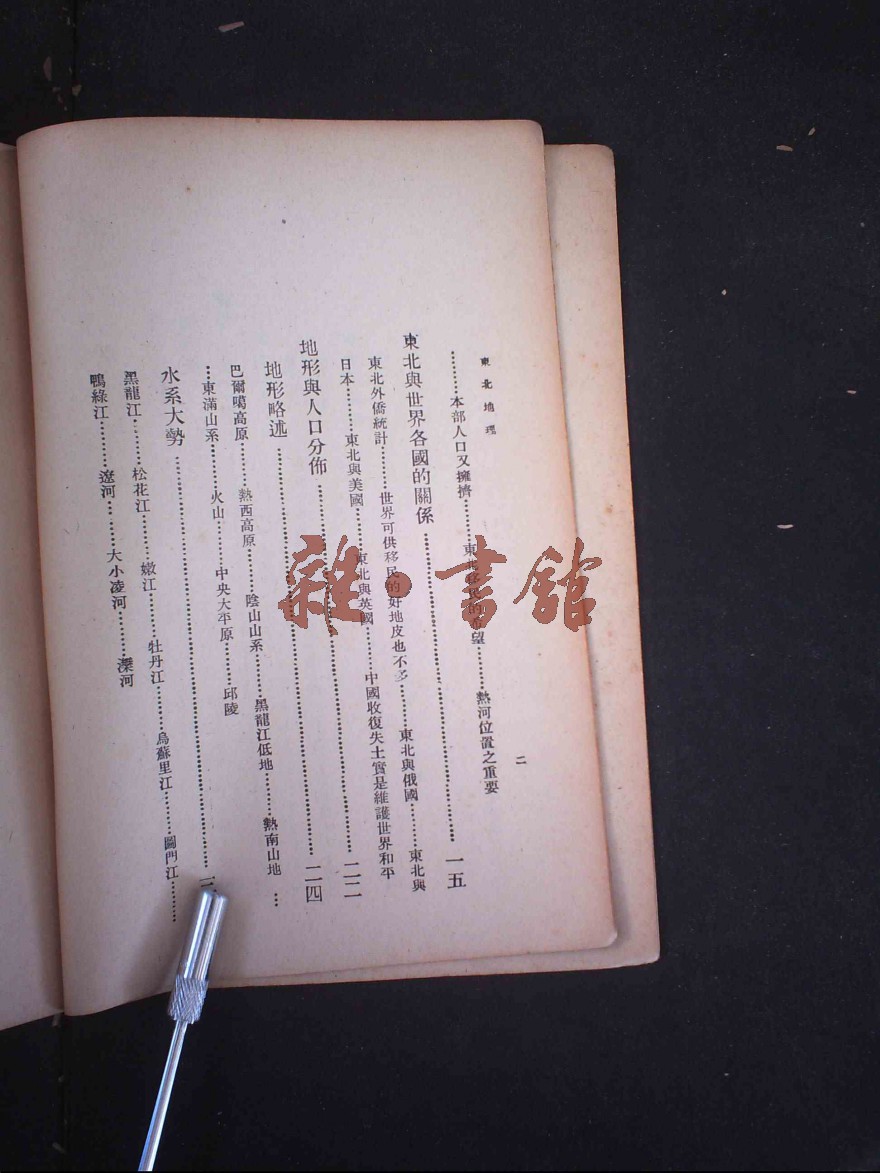 東北地理
二
………本部人口又擁擠………東北移民的希望………熱河位置之重要
東北與世界各國的關係………一五
東北外僑統計………世界可供移民的好地皮也不多………東北與俄國………東北與
日本………東北與美國………東北與英國………中國收復失土實是維護世界和平
地形與人口分佈………二二
地形略述………二四
巴爾噶高原………熱西高原………陰山山系………黑龍江低地………熱南山地…
…東滿山系………火山………中央大平原………邱陵
水系大勢………
黑龍江………松花江………嫩江………牡丹江………烏蘇里江………圖們江………
鴨綠江………遼河………大小凌河………灤河
雜·書館